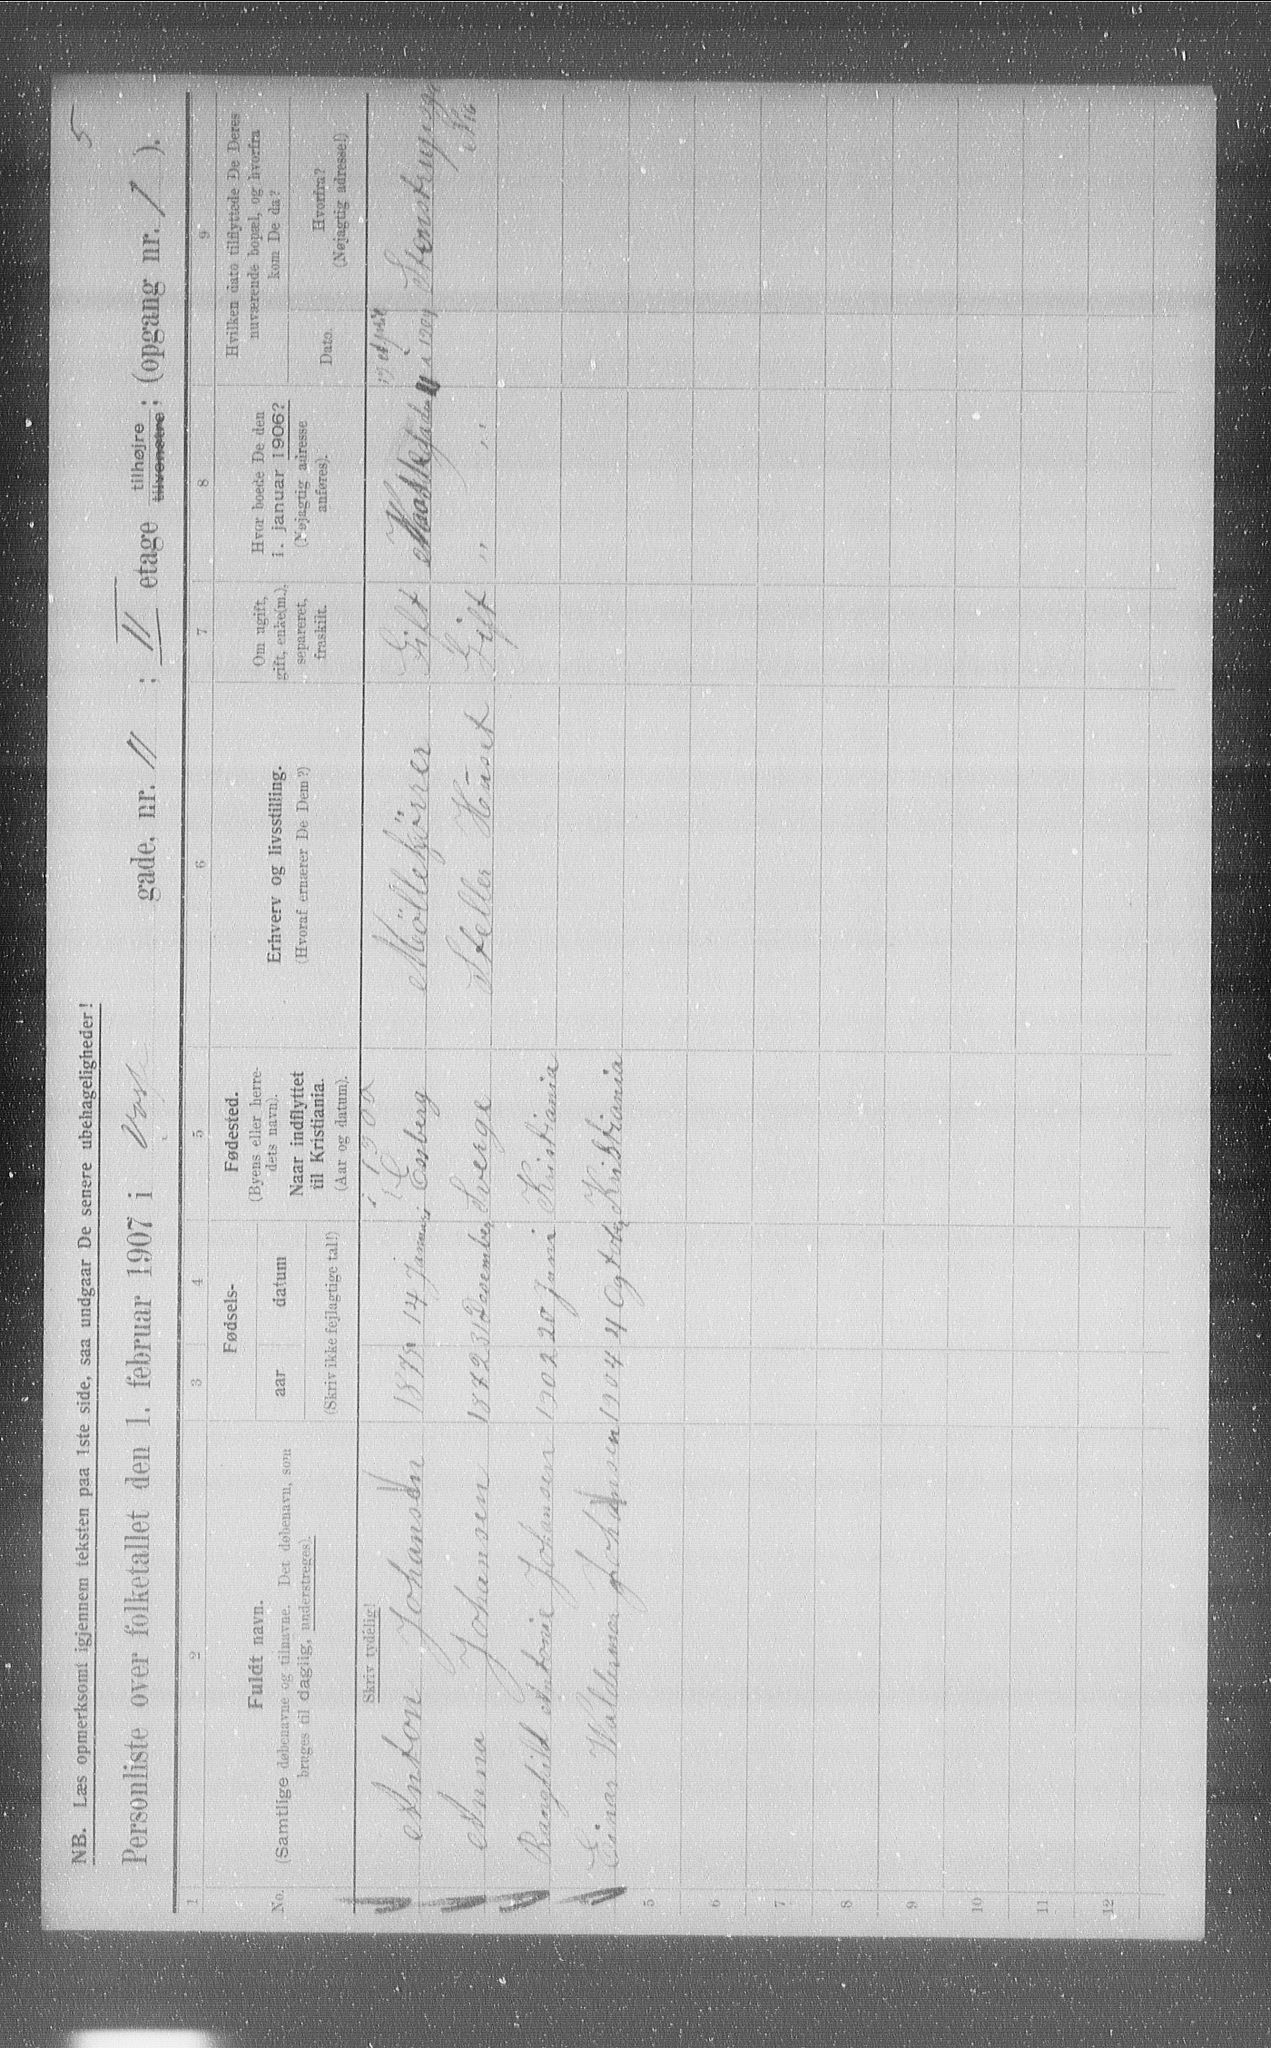 5
NB. Læs opmerksomt igjennem teksten paa 1ste side, saa undgaar De senere ubehageligheder!
Personliste over folketallet den 1. februar 1907 i Vogts gade, nr. 11 ; II etage tilhøjre tilvenstre; (opgang nr. 1 ).
1 2 3 4 5 6 7 8 9
No.
Fuldt navn.
(Samtlige døbenavne og tilnavne. Det døbenavn, som
bruges til daglig, understreges).
Fødsels-
aar datum
(Skriv ikke fejlagtige tal!)
Fødested.
(Byens eller herre-
dets navn).
Naar indflyttet
til Kristiania.
(Aar og datum).
Erhverv og livsstilling.
(Hvoraf ernærer De Dem?)
Om ugift,
gift, enke(m.),
separeret,
fraskilt.
Hvor boede De den
1. januar 1906?
(Nøjagtig adresse
anføres).
Hvilken dato tilflyttede De Deres
nuværende bopæl, og hvorfra
kom De da?
Dato.
Hvorfra?
(Nøjagtig adresse!)
Skriv tydelig!
Anton Johansen 14 Januar Møllekjörer Gift
Anna Johansen 1872 31 Desember Sverge Steller Huset Gift " "
Rangfild Antonie Johansen 1902 20 Juni Kristiania
Einar Waldemar Johansen 1904 4 Ogtober Kristiania
5
6
7
8
9
10
11
12